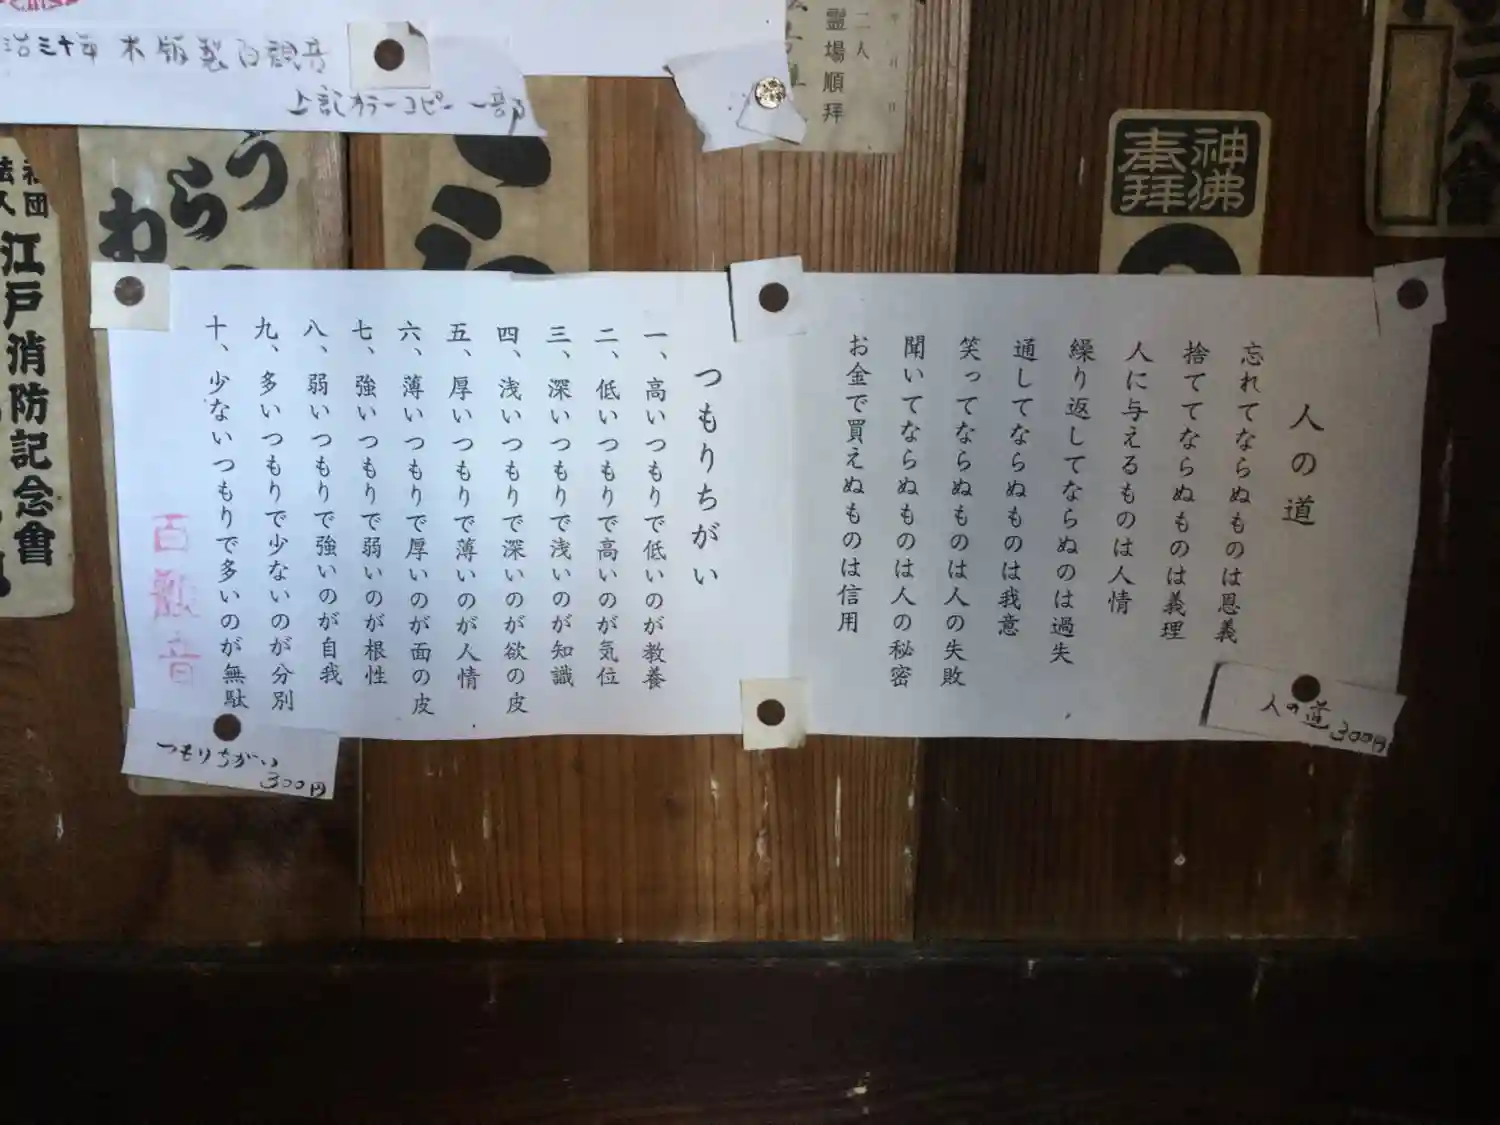 人の道
忘れてならぬものは恩義
捨ててならぬものは義理
人に与えるものは人情
繰り返してならぬのは過失
通してならぬものは我意
笑ってならぬものは人の失敗
聞いてならぬものは人の秘密
お金で買えぬものは信用
つもりちがい
一、高いつもりで低いのが教養
二、低いつもりで高いのが気位
三、深いつもりで浅いのが知識
四、浅いつもりで深いのが欲の皮
五、厚いつもりで薄いのが人情
六、薄いつもりで厚いのが面の皮
七、強いつもりで弱いのが根性
八、弱いつもりで強いのが自我
九、多いつもりで少ないのが分別
十、少ないつもりで多いのが無駄
百観音
人の道
300円
つもりちがい
300円
神佛
奉拝
二人
霊場順拝
三十年 木版製百観音
上記カラーコピー 一部
うらわ
社団
法人
江戸消防記念會